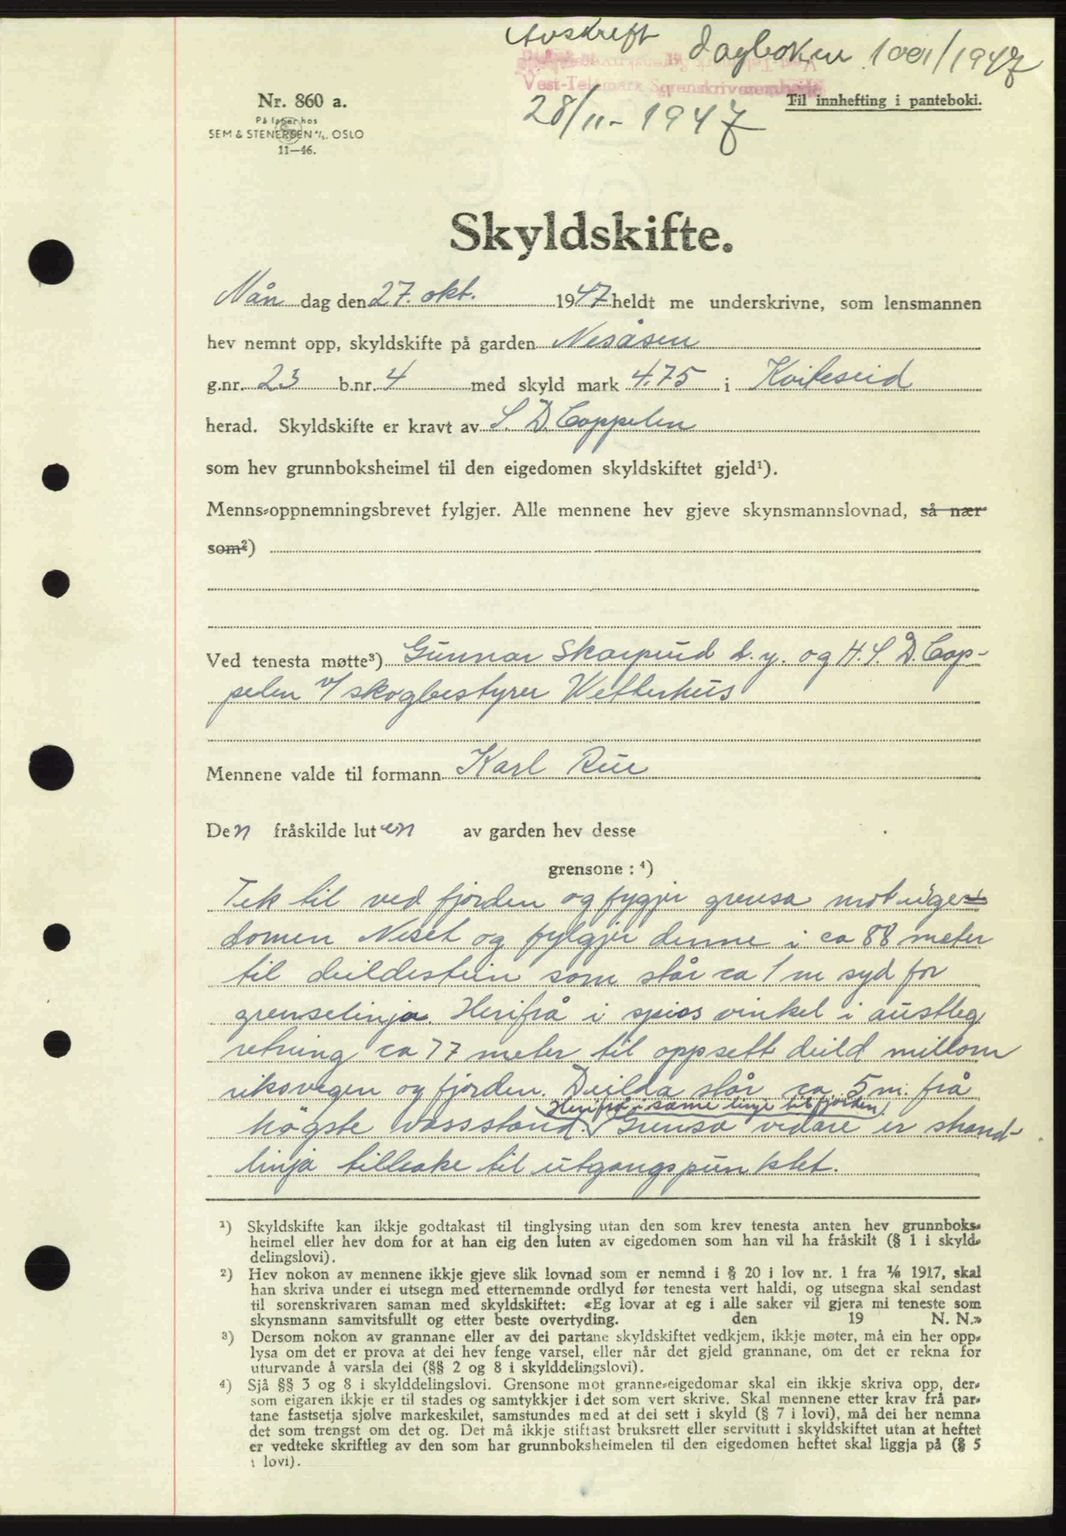 Avskrift dagboken 1001/1947
Vest-Telemark Sorenskriverembede
28/11-1947
Nr. 860 a.
Til innhefting i panteboki.
På lager hos
SEM & STENERSEN A/S. OSLO
11—46.
Skyldskifte.
Mån dag den 27. okt. 1947 heldt me underskrivne, som lensmannen
hev nemnt opp, skyldskifte på garden Nesåsen
g.nr. 23 b.nr. 4 med skyld mark 4.75 i Kviteseid
herad. Skyldskifte er kravt av S. D. Cappelen
som hev grunnboksheimel til den eigedomen skyldskiftet gjeld¹).
Menns-oppnemningsbrevet fylgjer. Alle mennene hev gjeve skynsmannslovnad, så nær
som²)
Ved tenesta møtte³) Gunnar Skarprud d. y. og H. S. D. Cap-
pelen v/ skogbestyrer Wetterhus
Mennene valde til formann Karl Rue
Den fråskilde luten av garden hev desse
grensone : ⁴)
Tek til ved fjorden og fygjer grensa mot eige-
domen Neset og fylgjer denne i ca 88 meter
til deildestein som står ca 1 m syd for
grenselinja. Herifrå i spiss vinkel i austleg
retning ca 77 meter til oppsett deild millom
riksvegen og fjorden. Deilda står ca. 5 m. frå
Herifrå i same linje til fjorden
högste vassstand. Grensa vidare er strand-
linja tilbake til utgangspunktet.
¹) Skyldskifte kan ikkje godtakast til tinglysing utan den som krev tenesta anten hev grunnboks-
heimel eller hev dom for at han eig den luten av eigedomen som han vil ha fråskilt (§ 1 i skyld-
delingslovi).
²) Hev nokon av mennene ikkje gjeve slik lovnad som er nemnd i § 20 i lov nr. 1 fra ⅙ 1917, skal
han skriva under ei utsegn med etternemnde ordlyd før tenesta vert haldi, og utsegna skal sendast
til sorenskrivaren saman med skyldskiftet: «Eg lovar at eg i alle saker vil gjera mi teneste som
skynsmann samvitsfullt og etter beste overtyding. den 19 N. N.»
³) Dersom nokon av grannane eller av dei partane skyldskiftet vedkjem, ikkje møter, må ein her opp-
lysa om det er prova at dei hev fenge varsel, eller når det gjeld grannane, om det er rekna for
uturvande å varsla dei (§§ 2 og 8 i skylddelingslovi).
⁴) Sjå §§ 3 og 8 i skylddelingslovi. Grensone mot granne-eigedomar skal ein ikkje skriva opp, der-
som eigaren ikkje er til stades og samtykkjer i det som vert skrive. Skal mennene etter krav frå par-
tane fastsetja sjølve markeskilet, samstundes med at dei sett i skyld (§ 7 i lovi), må dei her nemna
det som trengst om det og. Det må ikkje stiftast bruksrett eller servitutt i skyldskiftet utan at heftet
er vedteke skriftleg av den som har grunnboksheimelen til den eigedomen heftet skal liggja på (§ 5
i lovi).